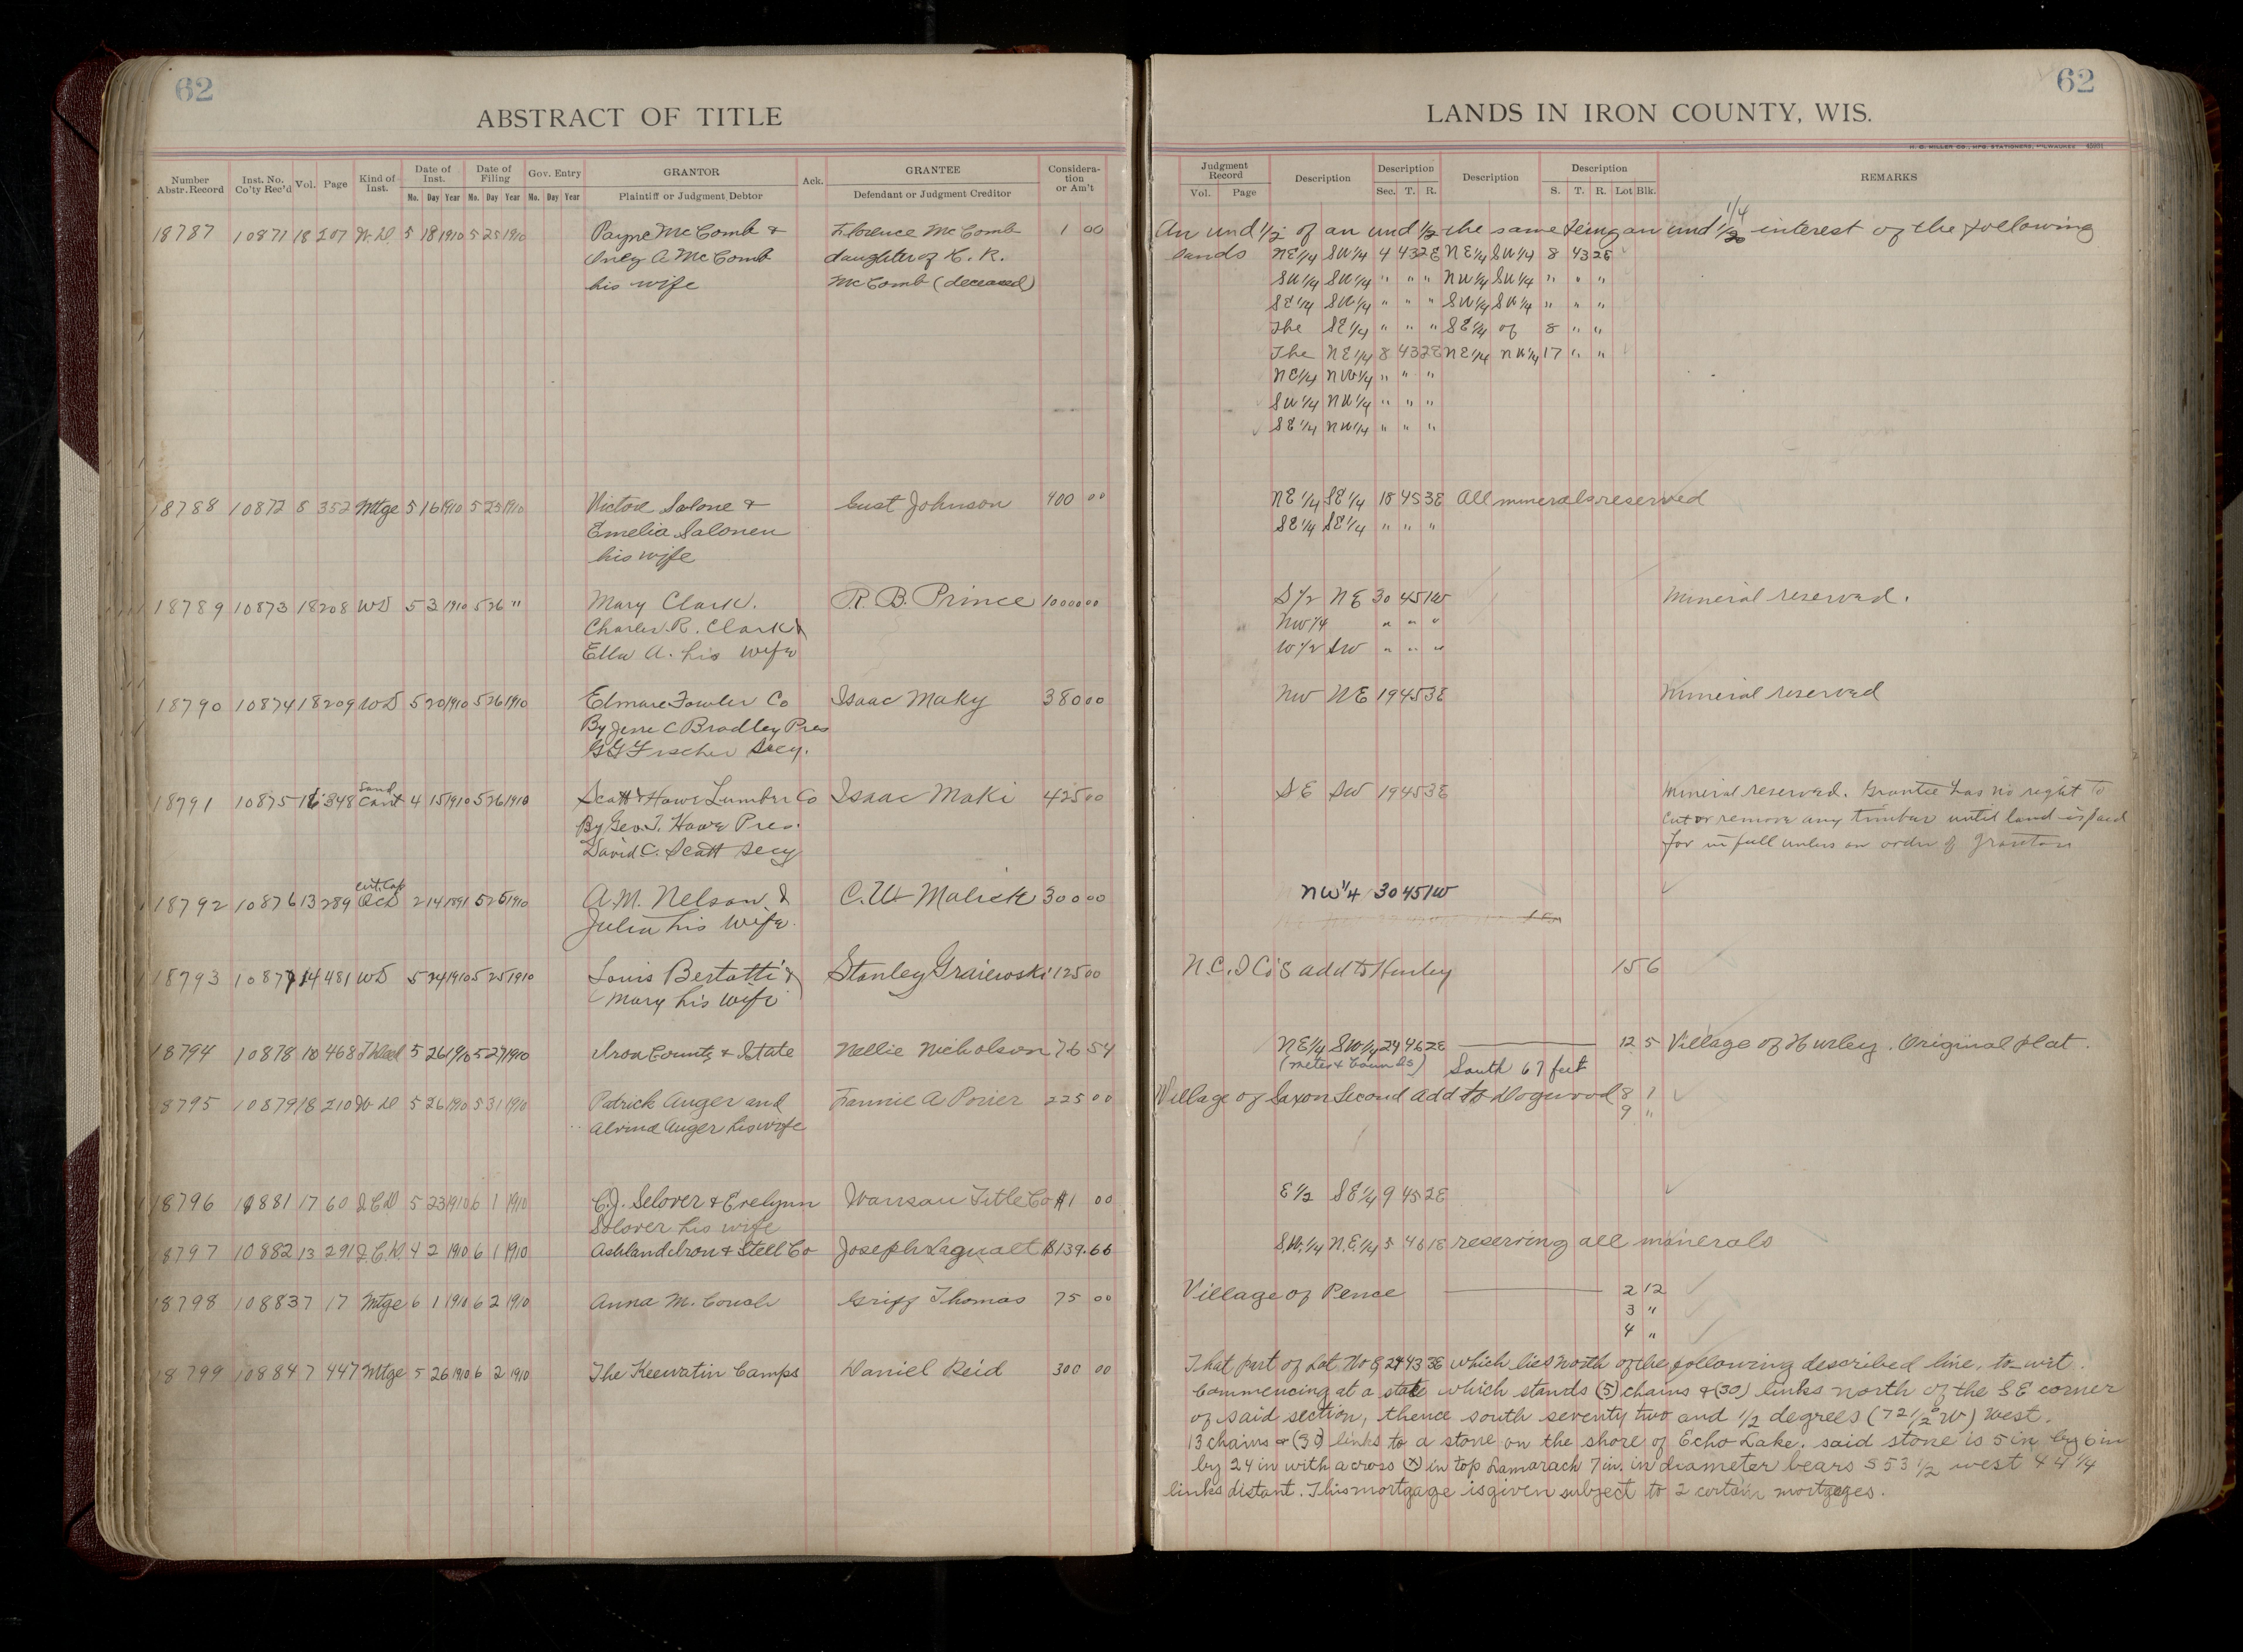 62
ABSTRACT OF TITLE
Number Abstr. Record Inst. No. Co'ty Rec'd Vol. Page Kind of Inst. Date of Inst. Mo. Day Year Date of Filing Mo. Day Year Gov. Entry Mo. Day Year GRANTOR Plaintiff or Judgment Debtor Ack. GRANTEE Defendant or Judgment Creditor Considera-tion or Am't
18787 10871 18 207 W.D. 5 18 1910 5 25 1910 Payne McComb & Florence McComb 1 00
A McComb daughter of
his wife McComb (deceased)
18788 10872 8 352 Mtge 5 16 1910 5 25 1910 Victore Salone & Gust Johnson 400 00
Emelia Salonen
his wife
18789 10873 18 208 WD 5 3 1910 5 26 " Mary Clark. R. B. Prince 1000 00
Charles R. Clark &
Ella A. his wife
18790 10874 18 209 WD 5 20 1910 5 26 1910 Elmare Fowler Co Isaac Maky 380 00
By Jesse C Bradley Pres
GG Fischer Secy.
18791 10875 16 348 Land Cont 4 15 1910 5 26 1910 Scott & Howe Lumber Co Isaac Maki 425 00
By Geo. T. Howe Pres.
David C. Scott Secy
18792 10876 13 289 Cert. Cop QCD 2 14 1891 5 25 1910 A. M. Nelson & C. W. Malick 300 00
Julia his wife.
18793 10877 14 481 WD 5 24 1910 5 25 1910 Louis Bertotti & Stanley Graiewski 125 00
Mary his wife
18794 10878 10 468 5 26 1910 5 27 1910 Iron County & State Nellie Nicholson 76 54
8795 10879 18 210 W.D. 5 26 1910 5 31 1910 Patrick Auger and Fannie A Porier 225 00
Alvina Auger his wife
18796 10881 17 60 Q.C.D. 5 23 1910 6 1 1910 C. J. Selover & Evelynn Wausau Title Co $1 00
Solover his wife
18797 10882 13 291 Q.C.D. 4 2 1910 6 1 1910 Ashland Iron & Stell Co Joseph $139.66
18798 10883 7 17 Mtge 6 1 1910 6 2 1910 Anna M. Couch Griff Thomas 75 00
18799 10884 7 447 Mtge 5 26 1910 6 2 1910 The Keewatin Camps Daniel Reid 300 00
62
LANDS IN IRON COUNTY, WIS.
H. G. MILLER CO., MFG. STATIONERS, MILWAUKEE
Judgment Record Vol. Page Description Description Sec. T. R. Description Description S. T. R. Lot Blk. REMARKS
An und 1/2 of an und 1/2 the same being an und 1/4 interest of the following
lands NE 1/4 SW 1/4 4 43 2E NE 1/4 SW 1/4 8 43 2E
SW 1/4 SW 1/4 " " " NW 1/4 SW 1/4 " " "
SE 1/4 SW 1/4 " " " SW 1/4 SW 1/4 " " "
The SE 1/4 " " " SE 1/4 of 8 " "
The NE 1/4 8 43 2E NE 1/4 NW 1/4 17 " "
NE 1/4 NW 1/4 " " "
SW 1/4 NW 1/4 " " "
SE 1/4 NW 1/4 " " "
NE 1/4 SE 1/4 18 45 3E All minerals reserved
SE 1/4 SE 1/4 " " "
S 1/2 NE 30 45 1W Mineral reserved.
NW 1/4 " " "
W 1/2 SW " " "
NW NE 19 45 3E Mineral reserved
SE SW 19 45 3E Mineral reserved. Grantee has no right to
cut or remove any timber until land is paid
for in full unless on order of Grantors
NW 1/4 30 45 1W
N.C.I Co's add to Hurley 15 6
NE 1/4 SW 1/4 24 46 2E 12 5 Village of Hurley. Original Plat.
(meter & bounds) South 67 feet
Village of Saxon Second Add to Dogwood 8 1
9 "
E 1/2 SE 1/4 9 45 2E
S.W. 1/4 N.E. 1/4 5 46 1E reserving all minerals
Village of Pence 2 12
3 "
4 "
That part of Lot No 9, 24 43 3E which lies north of the following described line, to wit.
Commencing at a state which stands (5) chains & (30) links north of the SE corner
of said section, thence south seventy two and 1/2 degrees (72 1/2° W) West.
13 chains & links to a stone on the shore of Echo Lake. said stone is 5 in by 6 in
by 24 in with a cross (x) in top Lamarack 7 in. in diameter bears S 53 1/2 west 44 1/4
links distant. This mortgage is given subject to 2 certain mortgages.